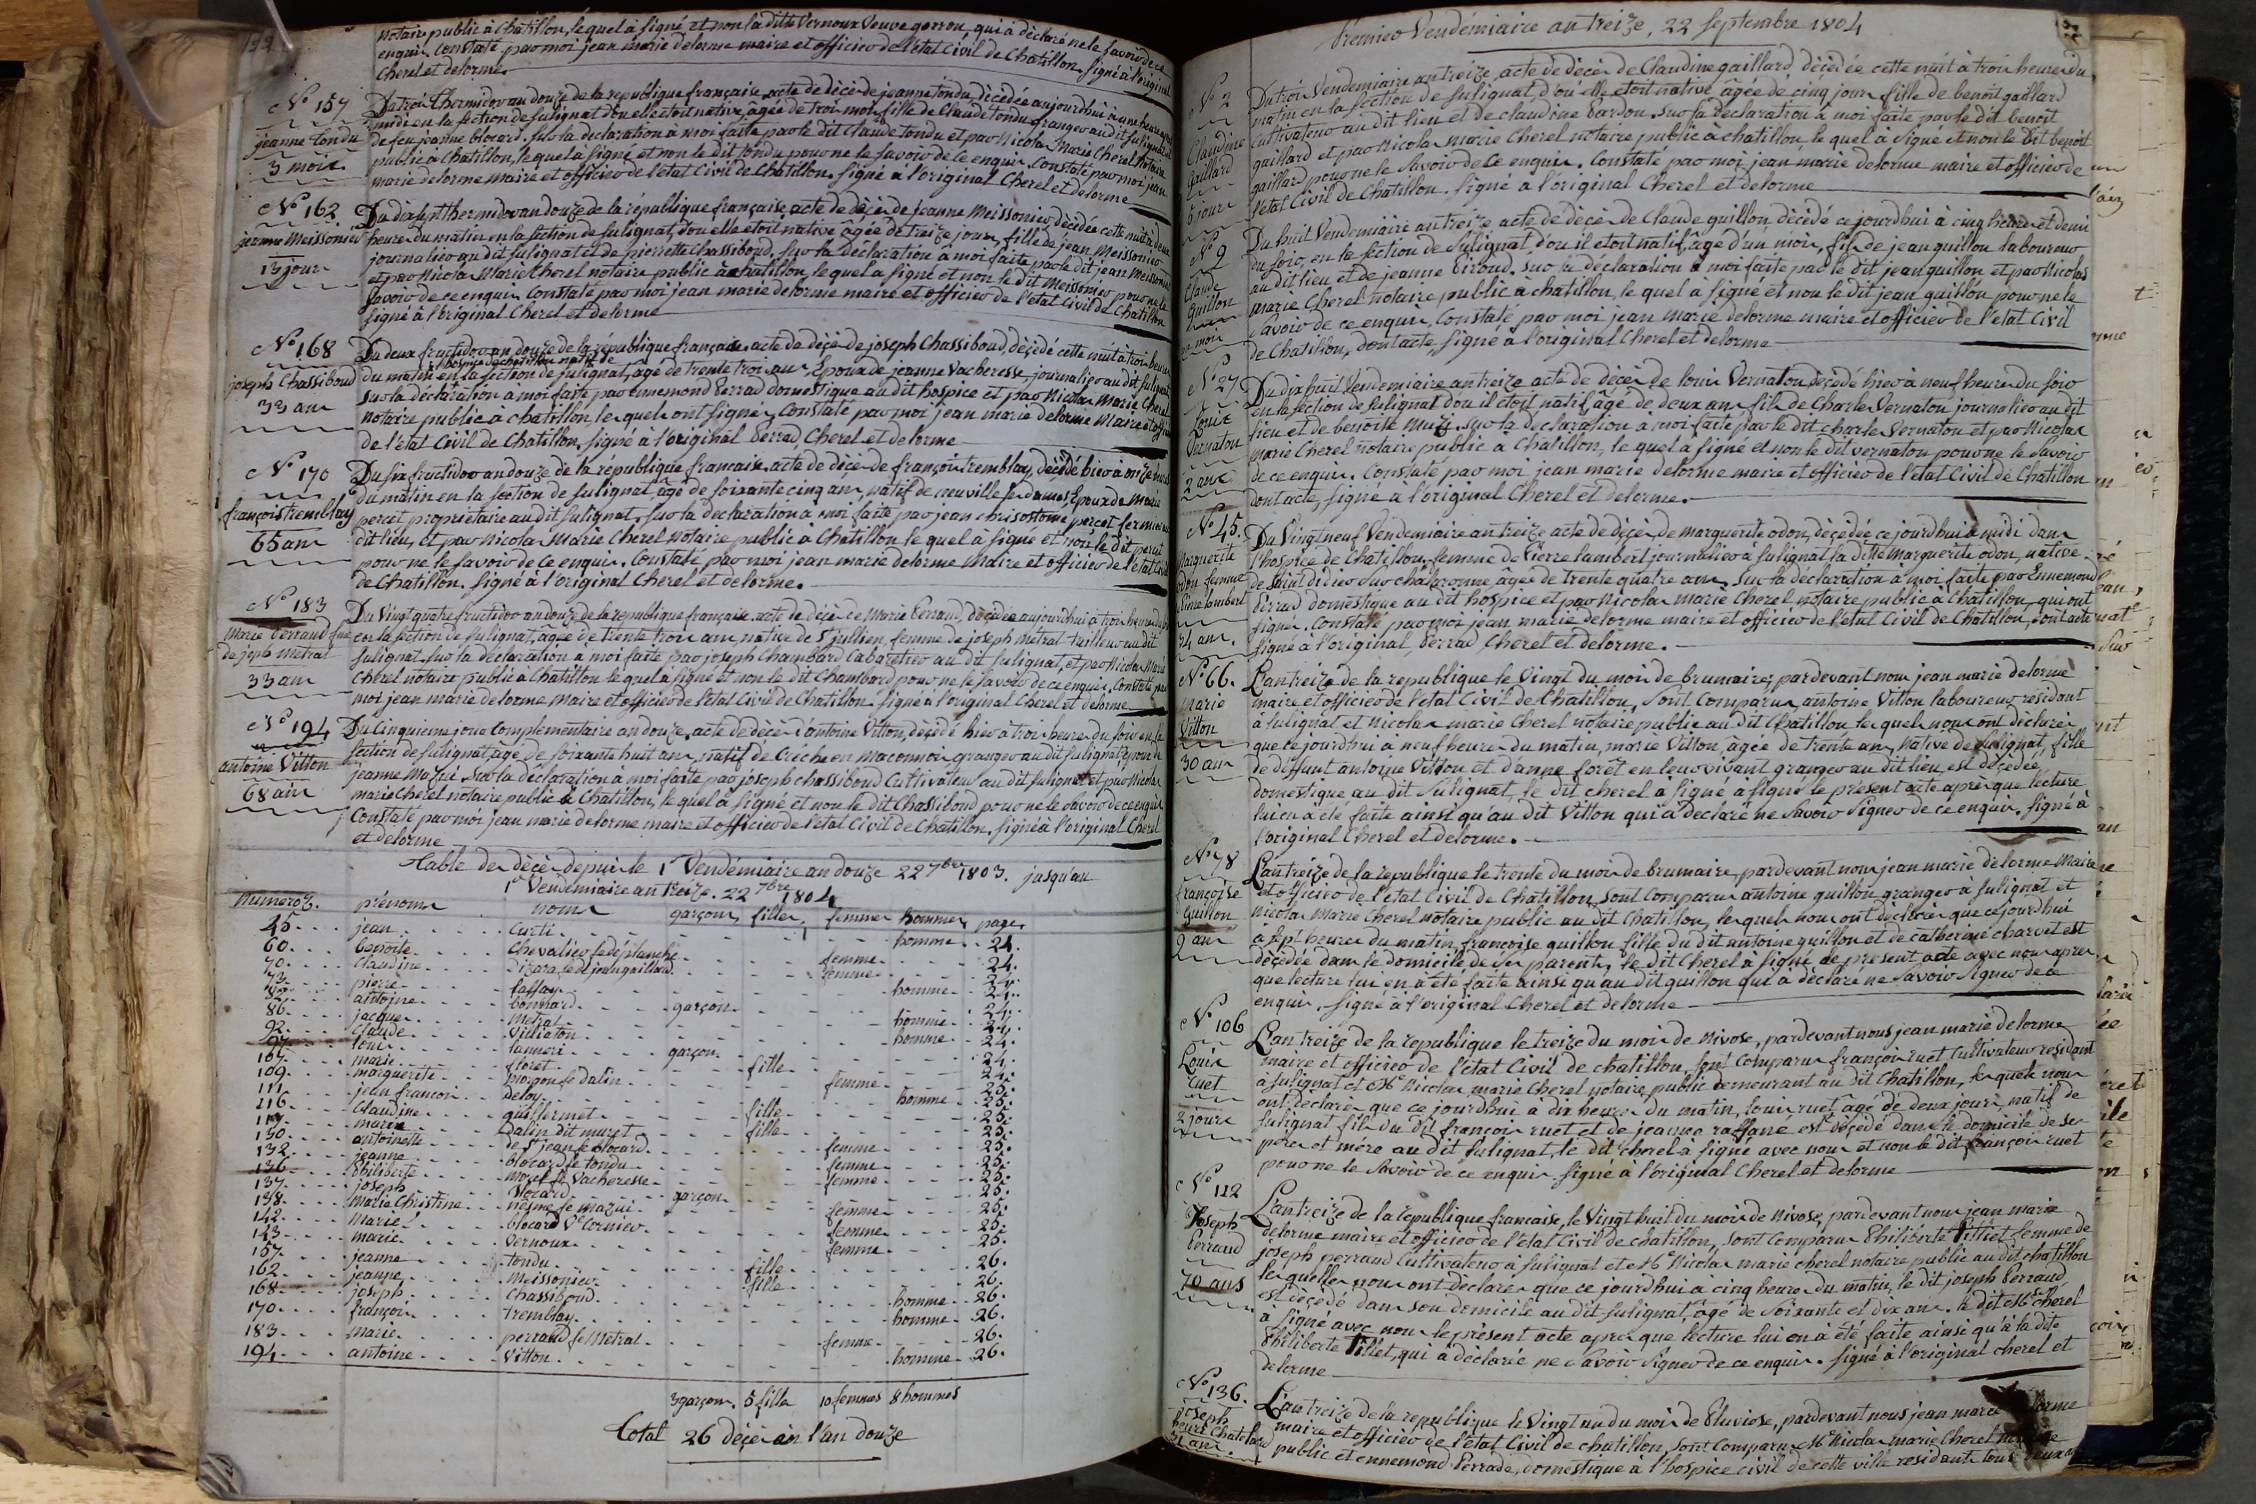 notaire public à Chatillon, lequel à signé et non la ditte Vernoux Veuve gorrou, qui à déclaré ne le savoir de ce
enquis. Constaté par moi jean marie delorme maire et officier de l'état Civil de Chatillon, signé à l'original
Cherel et delorme.
N° 157
jeanne tondu
3 mois
Du trois Thermidor an douze de la republique française, acte de décès de jeanne tondu, décédée aujourdhui à une heure après
midi en la section de sulignat d'ou elle etoit native, âgée de trois mois fille de Claude tondu granger au dit sulignat et
de feu jeanne blocard. sur la déclaration à moi faite par le dit Claude tondu et par Nicolas Marie Cherel Notaire
public à Chatillon, lequel à signé et non le dit tondu pour ne le savoir de ce enquis. Constaté par moi jean
marie delorme maire et officier de l'état Civil de Chatillon. signé a l'original Cherel et delorme
N° 162
jeanne Meissonier
13 jours
Du dix sept thermidor an douze de la république française acte de décès de jeanne Meissonier, décédée cette nuit à deux
heures du matin en la section de sulignat, d'ou elle etoit native âgée de treize jours, fille de jean Meissonier
journalier au dit sulignat et de pierrette Chassiboud, sur la déclaration à moi faite par le dit jean Meissonier
et par Nicolas Marie Cherel notaire public à chatillon, le quel a signé et non le dit Meissonier pour ne le
savoir de ce enquis Constaté par moi jean marie delorme maire et officier de l'état Civil de Chatillon
signé à l'original Cherel et delorme
N° 168
joseph Chassiboud
33 ans
Du deux fructidor an douze de la république française acte de décès de joseph Chassiboud, décédé cette nuit à trois heures
du matin en la section de sulignat, âgé de trente trois ans Epoux de jeanne Vacheresse, journalier au dit sulignat
sur la déclaration a moi faite par ennemond Perrad domestique au dit hospice et par Nicolas Marie Cherel
notaire public à chatillon lesquels ont signé, Constaté par moi jean marie delorme Maire et officier
de l'état Civil de Chatillon, signé à l'original Perrad Cherel et delorme
N° 170
françois tremblay
65 ans
Du six fructidor an douze de la république francaise acte de décès de françois tremblay, décédé hier à onze heures
du matin en la section de sulignat, âgé de soixante cinq ans, natif de neuville les dames Epoux de Marie
percet propriétaire au dit sulignat. sur la déclaration a moi faite par jean chrisostome percet fermier au
dit lieu, et par Nicolas Marie Cherel Notaire public à Chatillon le quel à signé et non le dit percet
pour ne le savoir de ce enquis. Constaté par moi jean marie delorme Maire et officier de l'état Civil
de Chatillon. signé à l'original Cherel et delorme.
N° 183
Marie Perraud fme
de joseph Métral
33 ans
Du Vingt quatre fructidor an douze de la republique française. acte de décès de Marie Perraud, décédée aujourdhui à trois heures du
en la section de sulignat, âgée de trente trois ans native de St jullien, femme de joseph Métral tailleur au dit
sulignat, sur la déclaration à moi faite par joseph Chambard Cabaretier au dit sulignat, et par Nicolas Marie
Cherel notaire public à Chatillon le quel a signé et non le dit Chambard pour ne le savoir de ce enquis, Constaté par
moi jean marie delorme Maire et officier de l'état Civil de Chatillon. signé à l'original Cherel et delorme
N° 194
antoine Vitton
68 ans
Du Cinquieme jour Complémentaire an douze, acte de décès d'antoine Vitton, décédé hier à trois heures du soir en la
section de sulignat, agé de soixante huit ans, natif de Crèche en maconnois granger au dit sulignat, Epoux de
jeanne Mazui sur la déclaration à moi faite par joseph chassiboud Cultivateur au dit sulignat et par Nicolas
marie Cherel notaire public à Chatillon, le quel à signé et non le dit Chassiboud pour ne le savoir de ce enquis
Constaté par moi jean marie delorme maire et officier de l'état Civil de Chatillon. signé à l'original Cherel
et delorme
Table des décès depuis le 1er Vendémiaire an douze 22 7bre 1803. jusqu'au
1er Vendémiaire an treize. 22 7bre 1804
numéros. prénoms noms garçons, filles, femmes hommes, pages
45 jean Curti homme 24.
60 benoite Chevalier fe déplanche femme 24.
70 Claudine Dizara fe de jean gaillard femme 24.
73 pierre laffay homme 24.
82 antoine bonnard garçon 24.
86 jacques Métral homme 24.
92 Claude Villieton homme 24.
97 loui lanneri garçon 24.
107 marie floret fille 24.
109 marguerite morgon fe Dalin femme 25.
111 jean françois deloy homme 25.
116 Claudine guillermet fille 25.
119 marie Dalin dit muret fille 25.
130 antoinette de St jean fe blocard femme 25.
132 jeanne blocard fe tondu femme 25.
136 Philiberte morel fe Vacheresse femme 25.
137 joseph blocard garçon 25.
138 Marie Christine nesme fe mazui femme 25.
142 Marie blocard Ve Cornier femme 25.
143 marie Vernoux femme 25.
157 jeanne tondu fille 26.
162 jeanne Meissonier fille 26.
168 joseph Chassiboud homme 26.
170 françois tremblay homme 26.
183 marie perraud fe Metral femme 26.
194 antoine Vitton homme 26.
3 garçons. 5 filles 10 femmes 8 hommes
Total 26 décès en l'an douze
Premier Vendémiaire an treize, 22 septembre 1804
27
N° 2
Claudine
gaillard
5 jours
Du trois Vendemiaire an treize, acte de décès de Claudine gaillard décédée cette nuit à trois heures du
matin en la section de sulignat, d'ou elle etoit native âgée de cinq jours fille de benoit gaillard
Cultivateur au dit lieu et de claudine Pardon. sur la déclaration à moi faite par le dit benoit
gaillard et par Nicolas Marie Cherel notaire public à chatillon, le quel à signé et non le dit benoit
gaillard pour ne le savoir de ce enquis. Constaté par moi jean marie delorme maire et officier de
l'état Civil de Chatillon. signé a l'original Cherel et delorme
N° 9
Claude
guillon
un mois
Du huit Vendemiaire an treize, acte de décès de Claude guillon, décédé ce jourdhui à cinq heures et demi
du soir, en la section de sulignat, d'ou il etoit natif âgé d'un mois, fils de jean guillon laboureur
au dit lieu et de jeanne Giroud, sur la déclaration à moi faite par le dit jean guillon et par Nicolas
marie Cherel notaire public à chatillon, le quel a signé et non le dit jean guillon pour ne le
savoir de ce enquis, Constaté par moi jean marie delorme maire et officier de l'état Civil
de Chatillon, dont acte, signé à l'original Cherel et delorme
N° 27
Louis
Vernaton
2 ans
Du dix huit Vendemiaire an treize acte de décès de louis Vernaton, décédé hier à neuf heures du soir
en la section de sulignat d'ou il etoit natif âgé de deux ans fils de Charles Vernaton journalier au dit
lieu et de benoite Muzi. sur la déclaration a moi faite par le dit charles Vernaton et par Nicolas
marie Cherel notaire public à Chatillon, le quel à signé et non le dit vernaton pour ne le savoir
de ce enquis. Constaté par moi jean marie delorme maire et officier de l'état Civil de Chatillon
dont acte, signé à l'original Cherel et delorme.
N° 45.
Marguerite
odon femme
Pierre lambert
34 ans.
Du Vingt neuf Vendemiaire an treize acte de décès de marguerite odon, décédée ce jourdhui à midi dans
l'hospice de Chatillon, femme de Pierre lambert journalier à sulignat, la ditte marguerite odon, native
de saint didier sur chalaronne, âgée de trente quatre ans. sur la déclaration à moi faite par Ennemond
Perrad domestique au dit hospice et par Nicolas marie Cherel notaire public à Chatillon, qui ont
signé. Constaté par moi jean marie delorme maire et officier de l'état Civil de Chatillon, dont acte
signé à l'original Perrad, Cherel et delorme.
N° 66.
Marie
Vitton
30 ans
L'an treize de la republique le Vingt du mois de brumaire, pardevant nous jean marie delorme
maire et officier de l'état Civil de Chatillon, sont Comparus antoine Vitton laboureur résidant
à sulignat et Nicolas marie Cherel notaire public au dit Chatillon lesquels nous ont déclaré
que ce jourdhui à neuf heures du matin, marie Vitton, âgée de trente ans, Native de sulignat, fille
de deffunt antoine Vitton et d'anne forêt en leur vivant granger au dit lieu, est décédée
domestique au dit sulignat, le dit cherel a signé le présent acte après que lecture
lui en a été faite ainsi qu'au dit Vitton qui à declaré ne savoir signer de ce enquis. signé à
l'original Cherel et delorme.
N° 78
françoise
guillon
9 ans
L'an treize de la republique le trente du mois de brumaire, pardevant nous jean marie delorme maire
et officier de l'état Civil de Chatillon, sont Comparus antoine guillon granger à sulignat et
Nicolas Marie Cherel notaire public au dit Chatillon, lesquels nous ont déclaré que ce jourdhui
à sept heures du matin, françoise guillon fille du dit antoine guillon et de catherine charvet est
décédée dans le domicile de ses parents, le dit Cherel à signé le présent acte avec nous après
que lecture lui en a été faite ainsi qu'au dit guillon qui à déclaré ne savoir signer de ce
enquis. signé à l'original Cherel et delorme
N° 106
Louis
ruet
2 jours
L'an treize de la republique le treize du mois de Nivose, pardevant nous jean marie delorme
maire et officier de l'état Civil de chatillon, sont Comparus françois ruet Cultivateur résidant
à sulignat et Me Nicolas marie Cherel Notaire public demeurant au dit Chatillon, lesquels nous
ont déclaré que ce jourdhui à dix heures du matin, louis ruet âgé de deux jours, natif de
sulignat fils du dit françois ruet et de jeanne raffane est décédé dans le domicile de ses
père et mère au dit sulignat, le dit cherel à signé avec nous et non le dit françois ruet
pour ne le savoir de ce enquis signé à l'original Cherel et delorme
N° 112
Joseph
Perraud
70 ans
L'an treize de la république francaise, le Vingt huit du mois de Nivose, pardevant nous jean marie
delorme maire et officier de l'état Civil de chatillon, sont Comparus Philiberte Pittiet femme de
joseph perraud Cultivateur à sulignat et Me Nicolas marie cherel notaire public au dit chatillon
lesquelles nous ont déclaré que ce jourdhui à cinq heures du matin, le dit joseph Perraud
est décédé dans son domicile au dit sulignat, âgé de soixante et dix ans. le dit Me cherel
à signé avec nous le présent acte après que lecture lui en à été faite ainsi qu'à la dite
Philiberte Pittiet, qui à déclarée ne savoir signer de ce enquis. signé à l'original cherel et
delorme
N° 136.
joseph
Chatelard
31 ans
L'an treize de la republique le Vingt un du mois de Pluviose, pardevant nous jean marie delorme
maire et officier de l'état Civil de chatillon, sont Comparus Me Nicolas marie Cherel notaire
public et ennemond Perrade, domestique à l'hospice civil de cette ville residants tous deux